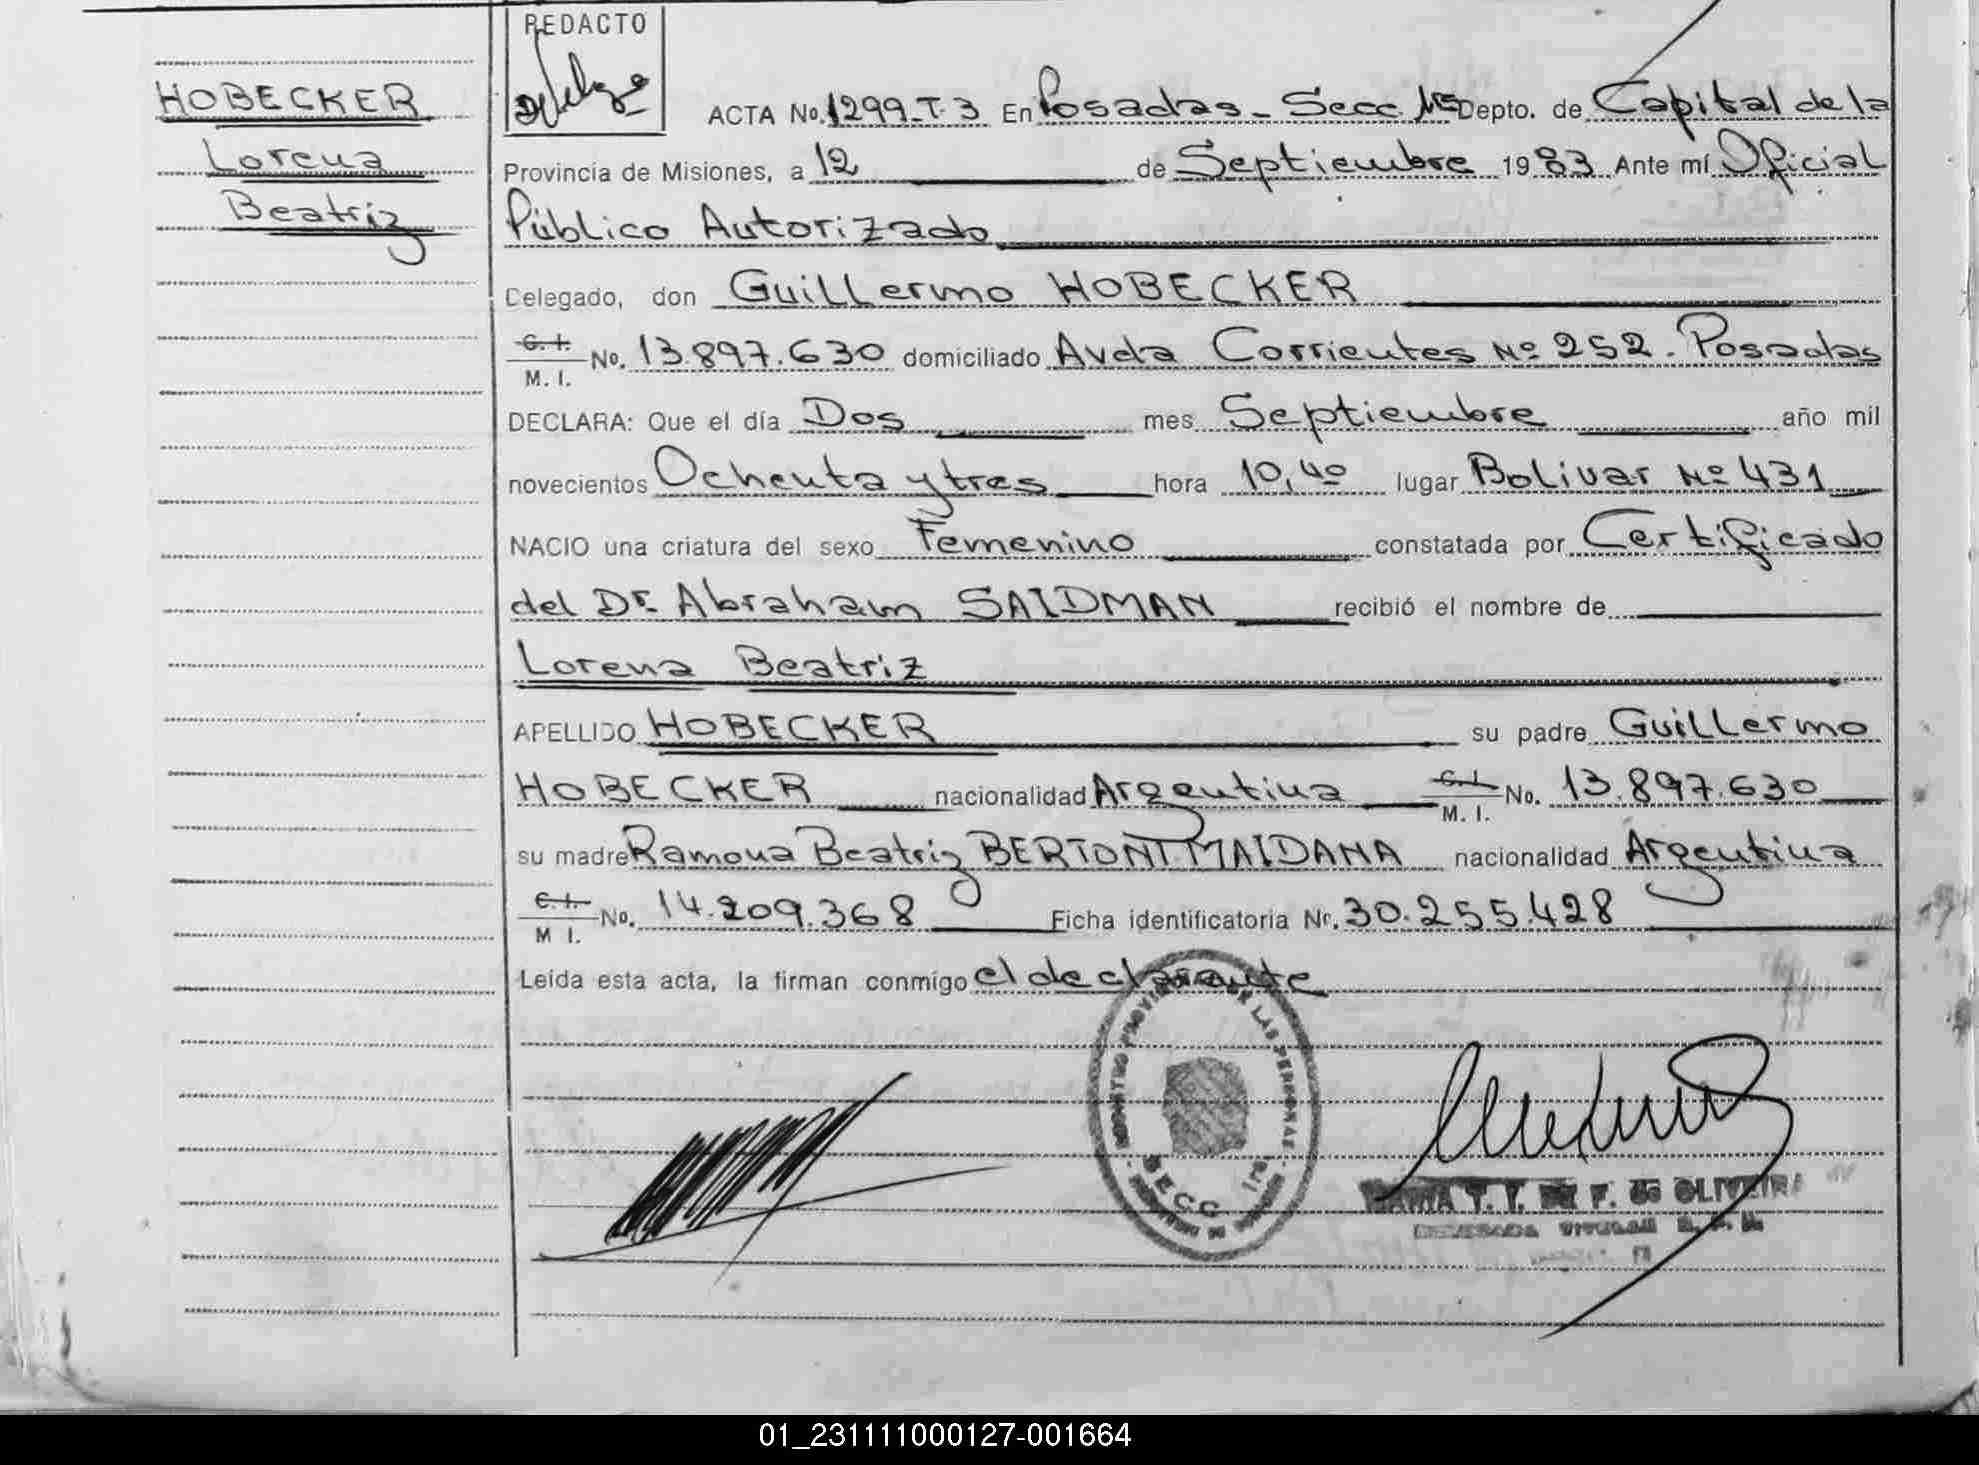 REDACTO
HOBECKER
Lorena
Beatriz
ACTA No. 1299-T-3 En Posadas - Secc 1ra Depto. de Capital de la
Provincia de Misiones, a 12 de Septiembre 1983 Ante mí Oficial
Público Autorizado
Celegado, don Guillermo HOBECKER
C. I.
M. I. No. 13.897.630 domiciliado Avda Corrientes Nº 252. Posadas
DECLARA: Que el día Dos mes Septiembre año mil
novecientos Ochenta y tres hora 10,40 lugar Bolivar Nº 431
NACIO una criatura del sexo Femenino constatada por Certificado
del Dr. Abraham SAIDMAN recibió el nombre de
Lorena Beatriz
APELLIDO HOBECKER su padre Guillermo
HOBECKER nacionalidad Argentina C. I. M. I. No. 13.897.630
su madre Ramona Beatriz BERTONI MAIDANA nacionalidad Argentina
C. I.
M I. No. 14.209.368 Ficha identificatoria Nr. 30.255.428
Leída esta acta, la firman conmigo el declarante
LAS PERSONAS
SECC. 1ra
MARIA T. T. DE F. de OLIVEIRA
TITULAR
01_231111000127-001664